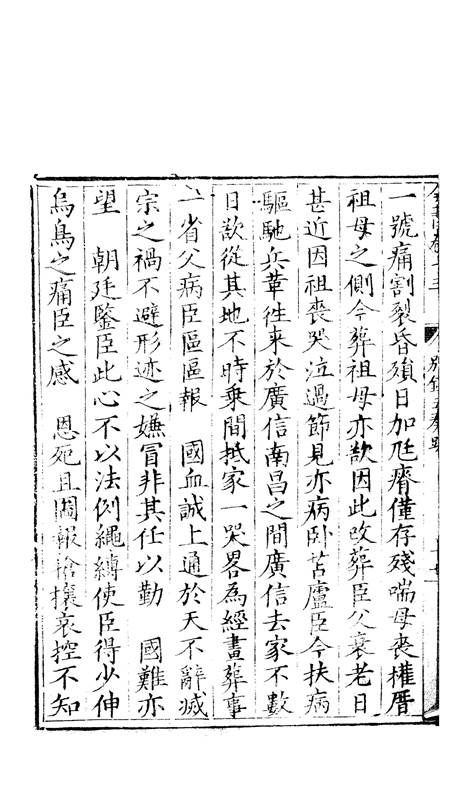 一號痛割裂昏殞日加尫瘠僅存殘喘母喪權厝
祖母之側今葬祖母亦欲因此改葬臣父衰老日
甚近因祖喪哭泣過節見亦病臥苫廬臣今扶病
驅馳兵革往來於廣信南昌之間廣信去家不數
日欲從其地不時乗間抵家一哭畧為經畫葬事
一省父病臣區區報　國血誠上通於天不辭滅
宗之禍不避形迹之嫌冒非其任以勤　國難亦
望　朝廷鑒臣此心不以法例繩縛使臣得少伸
烏鳥之痛臣之感　恩死且圖報搶攘哀控不知